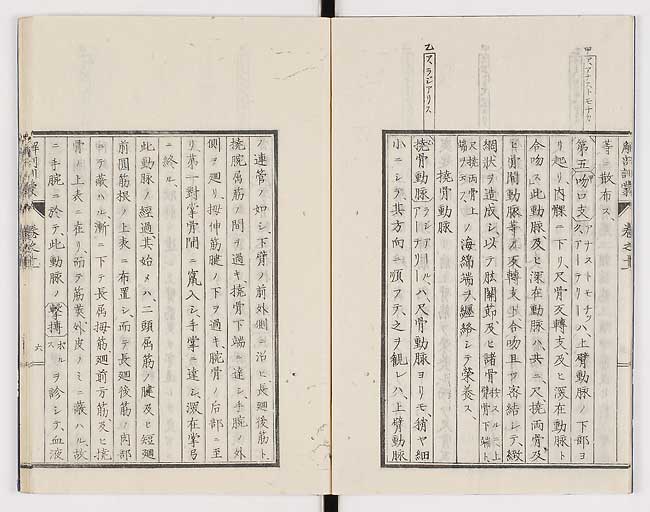 等ニ散布ス、
第五吻口支アナストモナカ、アーテリーハ、上臂動脈ノ下部ヨ
リ起リ、内髁ニ下リ、尺骨反轉支及ヒ深在動脈ト
合吻ス、此動脈及ヒ深在動脈ハ、共ニ、尺撓兩骨及
ヒ骨間動脈等ノ反轉支ト、合吻且ツ密結シテ、緻
網狀ヲ造成シ、以テ肢關節及ヒ諸骨按スルニ上臂骨下端ト、
尺撓兩骨上端ヲ云フ、ノ海綿端ヲ纏絡シテ榮養ス、
撓骨動脈
撓骨動脈ラジアール、アーテリーハ、尺骨動脈ヨリモ、稍ヤ細
小ニシテ、其方向ニ順フテ、之ヲ觀レハ、上臂動脈
乙 ラジアリス
解剖訓蒙 卷之十三
ノ連管ノ如シ、下臂ノ前外側ニ沿ヒ長廻後筋ト、
撓腕屬筋ノ間ヲ過キ、撓骨下端ニ達シ、手腕ノ外
側ヲ廻リ、拇伸筋腱ノ下ヲ過キ、腕骨ノ后部ニ至
リ、第一對掌骨間ニ竄入シ、手掌ニ達シ、深在掌弓
ニ終ル、
此動脈ノ經過、其始メハ、二頭屈筋ノ腱及ヒ短廻
前圓筋根ノ上表ニ布置シ、而テ長廻後筋ノ肉部
ニテ蔵ハル、漸ニ下テ長屈拇筋廻前方筋及ヒ撓
骨ノ上表ニ在リ、而テ筋膜外皮ノミニ蔵ハル、故
ニ手腕ニ於テ、此動脈ノ擊搏ポルスヲ診シテ、血液
六